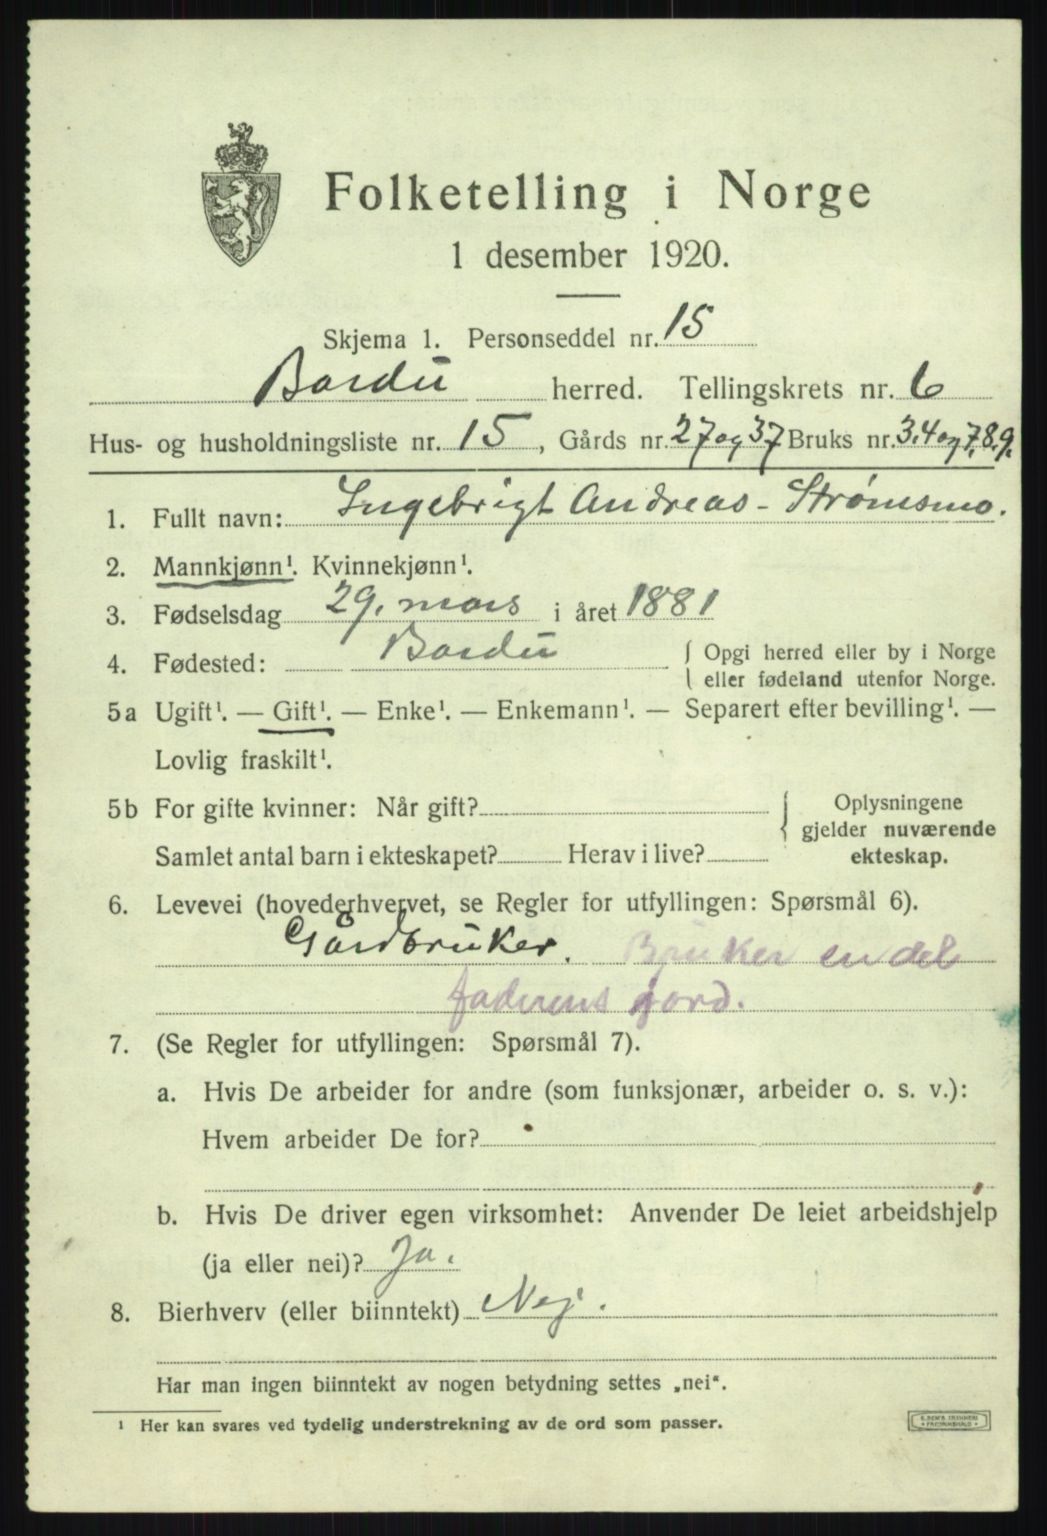 Folketelling i Norge
1 desember 1920.
Skjema 1. Personseddel nr. 15
Bardu herred. Tellingskrets nr. 6
Hus- og husholdningsliste nr. 15, Gårds nr. 27 og 37 Bruks nr. 3.4 og 7.8.9.
1. Fullt navn: Ingebrigt Andreas - Strømsmo.
2. Mannkjønn¹. Kvinnekjønn¹.
3. Fødselsdag 29. mars i året 1881
4. Fødested: Bardu { Opgi herred eller by i Norge
eller fødeland utenfor Norge.
5a Ugift¹. — Gift¹. — Enke¹. — Enkemann¹. — Separert efter bevilling¹. —
Lovlig fraskilt¹.
5b For gifte kvinner: Når gift? { Oplysningene
gjelder nuværende
Samlet antal barn i ekteskapet? Herav i live? ekteskap.
6. Levevei (hovederhvervet, se Regler for utfyllingen: Spørsmål 6).
Gårdbruker. Bruker en del
faderens jord.
7. (Se Regler for utfyllingen: Spørsmål 7).
a. Hvis De arbeider for andre (som funksjonær, arbeider o. s. v.):
Hvem arbeider De for?
b. Hvis De driver egen virksomhet: Anvender De leiet arbeidshjelp
(ja eller nei)? Ja.
8. Bierhverv (eller biinntekt) Nej.
Har man ingen biinntekt av nogen betydning settes „nei“.
¹ Her kan svares ved tydelig understrekning av de ord som passer.